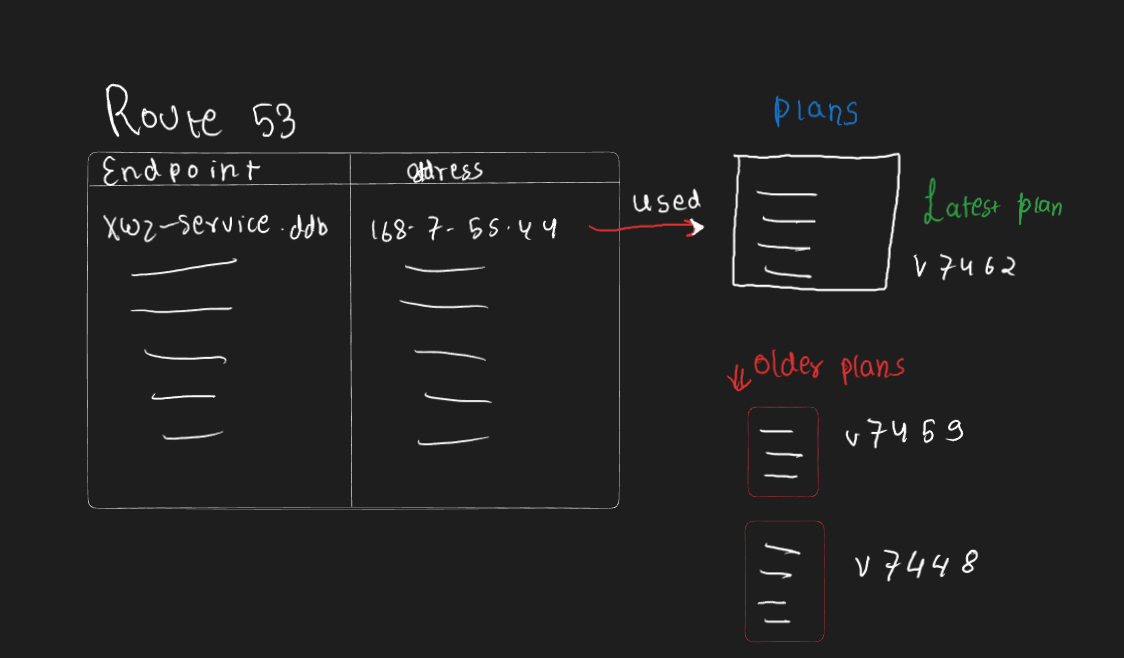 Route 53
Endpoint address
xwz-service.ddb 168-7-55.44
used
plans
Latest plan
v7462
Older plans
v7459
v7448